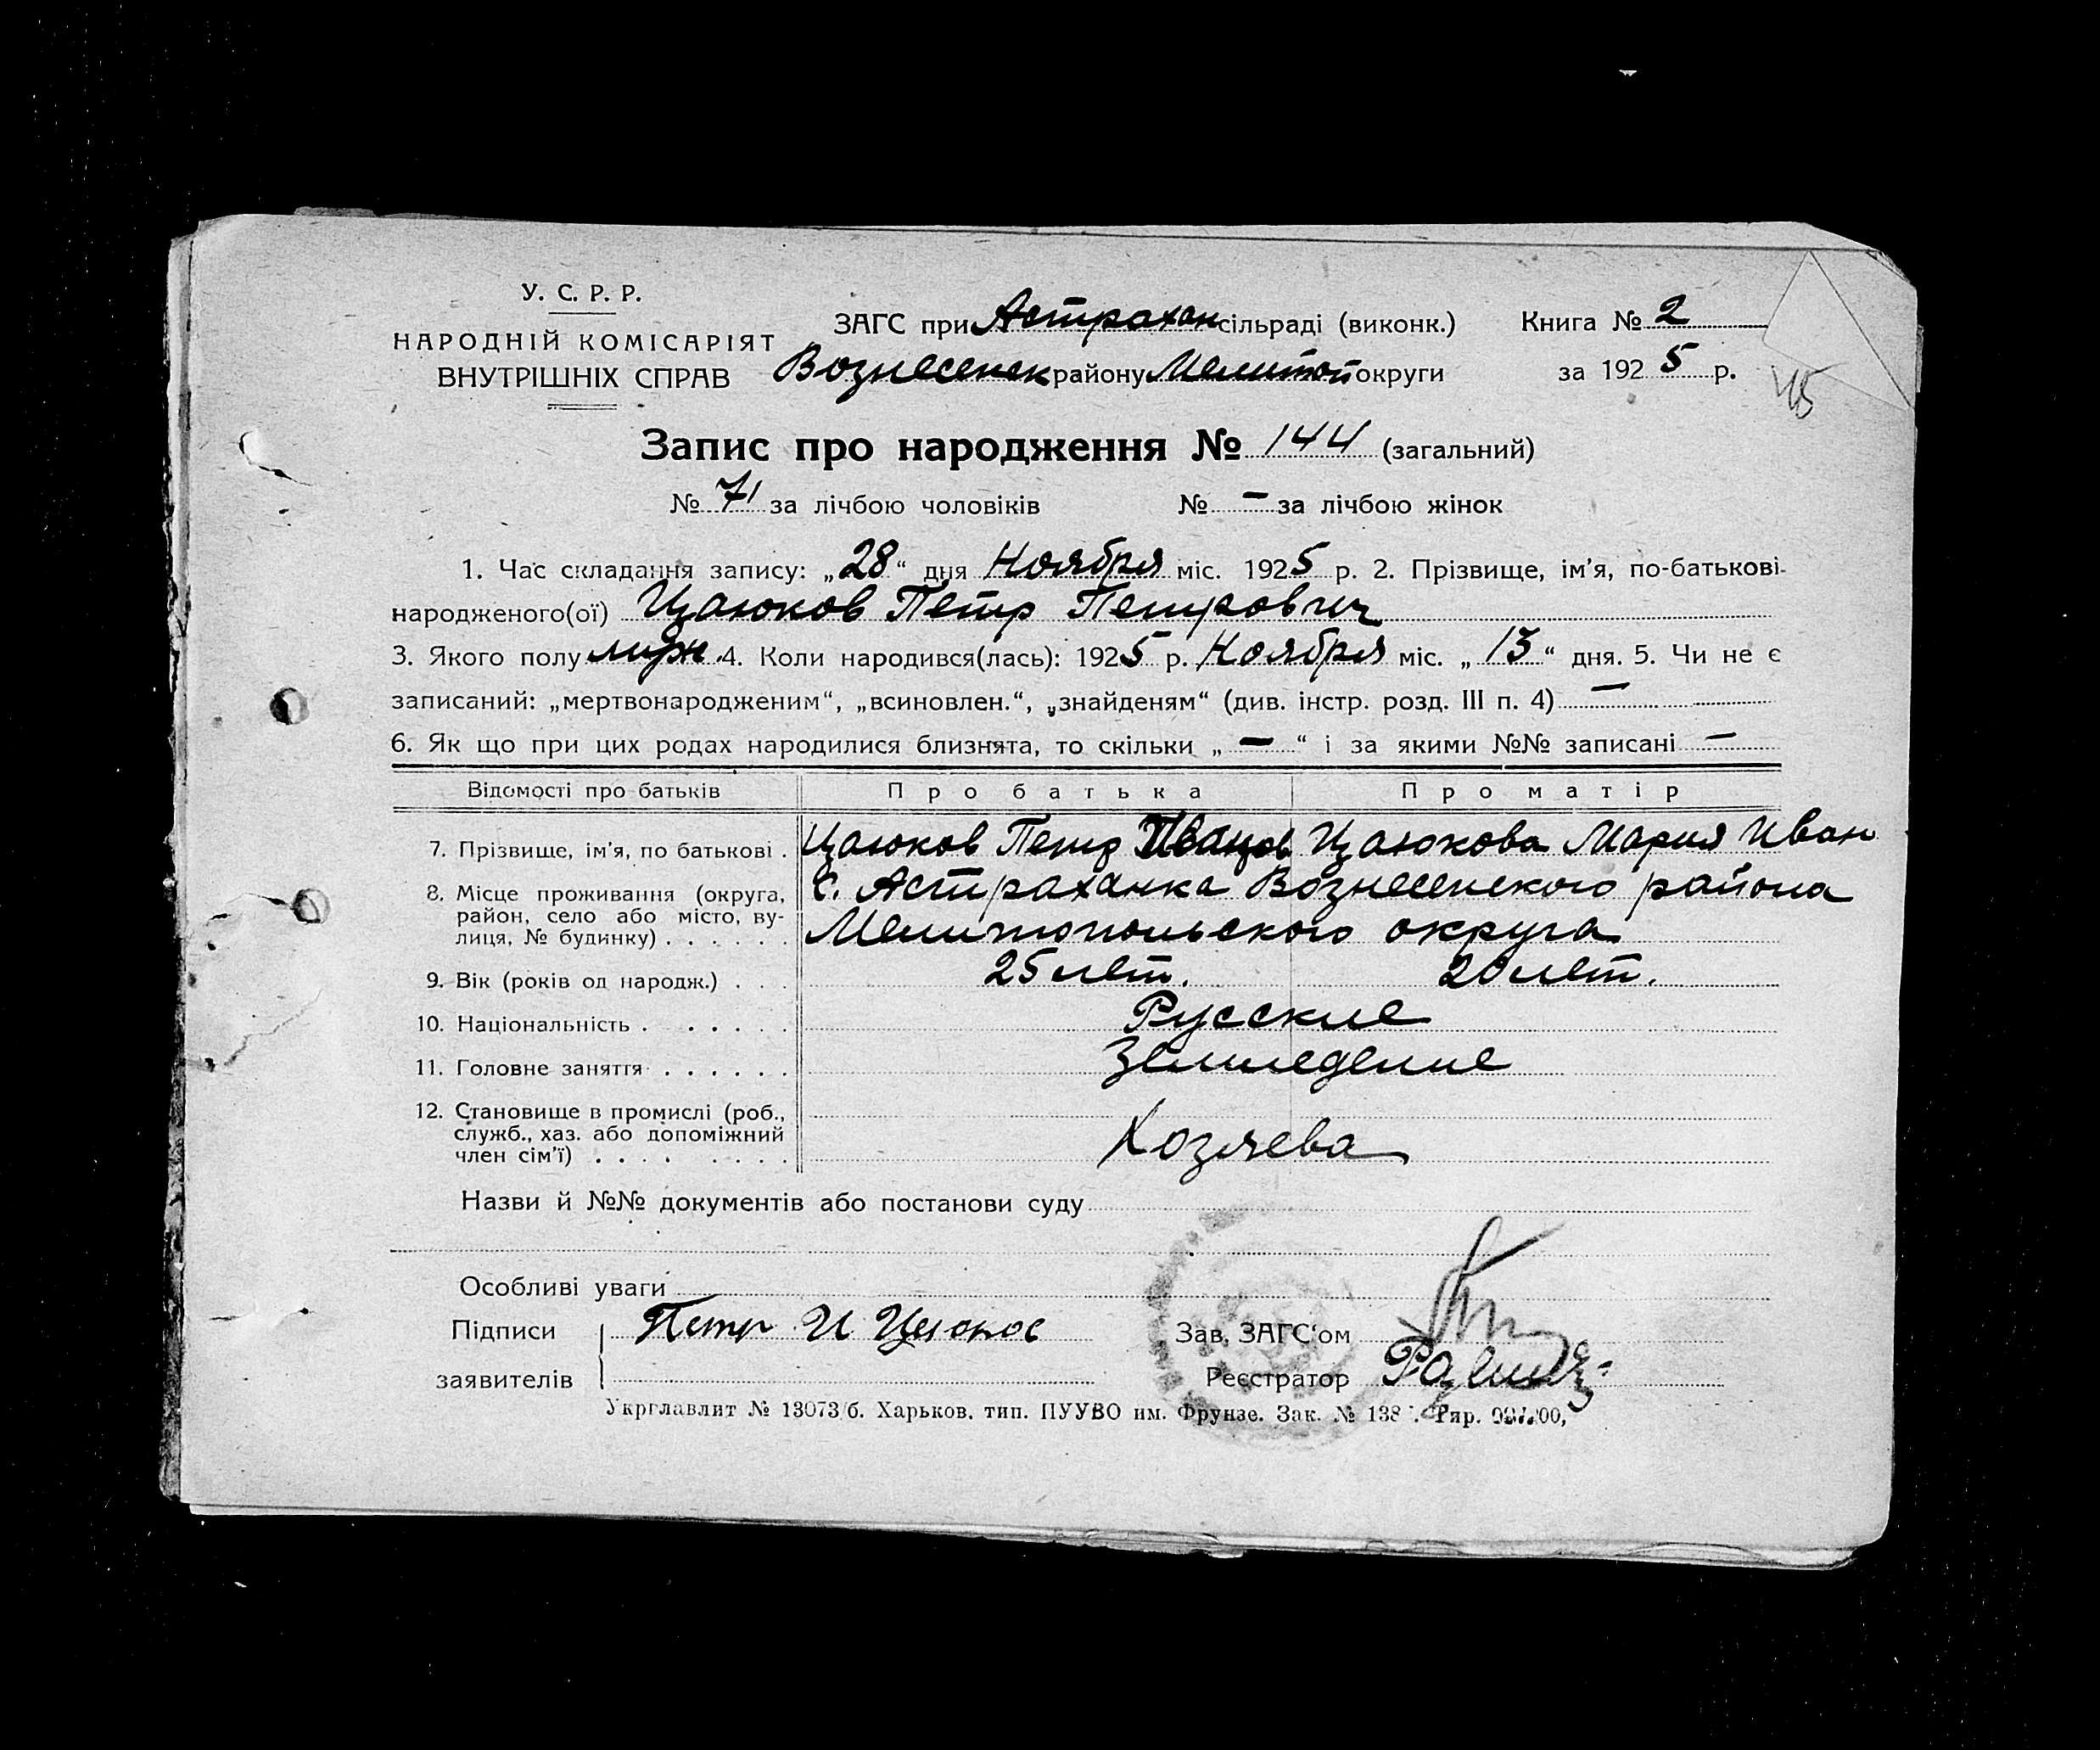 У. С. Р. Р.
НАРОДНІЙ КОМІСАРІЯТ
ВНУТРІШНІХ СПРАВ
ЗАГС при Астрахан сільраді (виконк.) Книга № 2
Вознесенск району Мелитоп округи за 1925 р.
45
Запис про народження № 144 (загальний)
№ 71 за лічбою чоловіків № — за лічбою жінок
1. Час складання запису: „28“ дня Ноября міс. 1925 р. 2. Прізвище, ім’я, по-батькові
народженого(ої) Цаюков Петр Петрович
3. Якого полу мужс. 4. Коли народився(лась): 1925 р. Ноября міс. „13“ дня. 5. Чи не є
записаний: „мертвонародженим“, „всиновлен.“, „знайденям“ (див. інстр. розд. III п. 4) —
6. Як що при цих родах народилися близнята, то скільки „—“ і за якими №№ записані —
Відомості про батьків Про батька Про матір
7. Прізвище, ім’я, по батькові . Цаюков Петр Иванов Цаюкова Мария Иван
8. Місце проживання (округа, район, село або місто, вулиця, № будинку) . . . . . . с. Астраханка Вознесенского района
Мелитопольского округа
9. Вік (років од народж.) . . . 25 лет. 20 лет.
10. Національність . . . . . . Русские
11. Головне заняття . . . . . . Земледелие
12. Становище в промислі (роб., служб., хаз. або допоміжний член сім’ї) . . . . . . . . Хозяева
Назви й №№ документів або постанови суду
Особливі уваги
Підписи заявителів Петр И Цаюков
Зав. ЗАГС‘ом
Реєстратор
Укрглавлит № 13073/б. Харьков. тип. ПУУВО им. Фрунзе. Зак. №